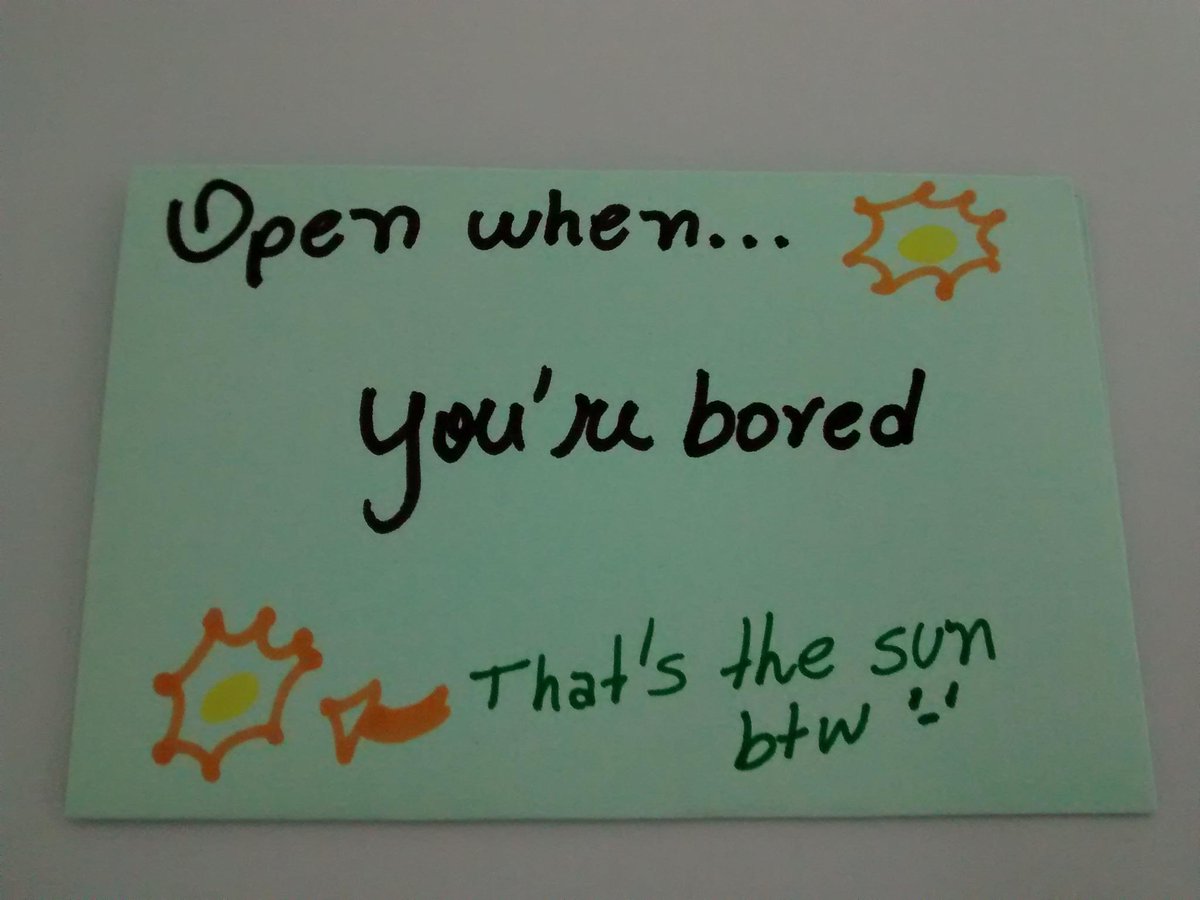 Open when...
you're bored
That's the sun
btw '-'